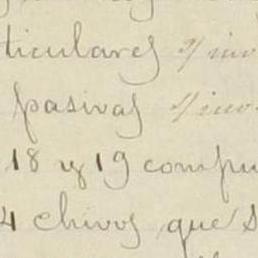 ticulares y inv
pasivas y inv
18 y 19 compu
4 chivos que s